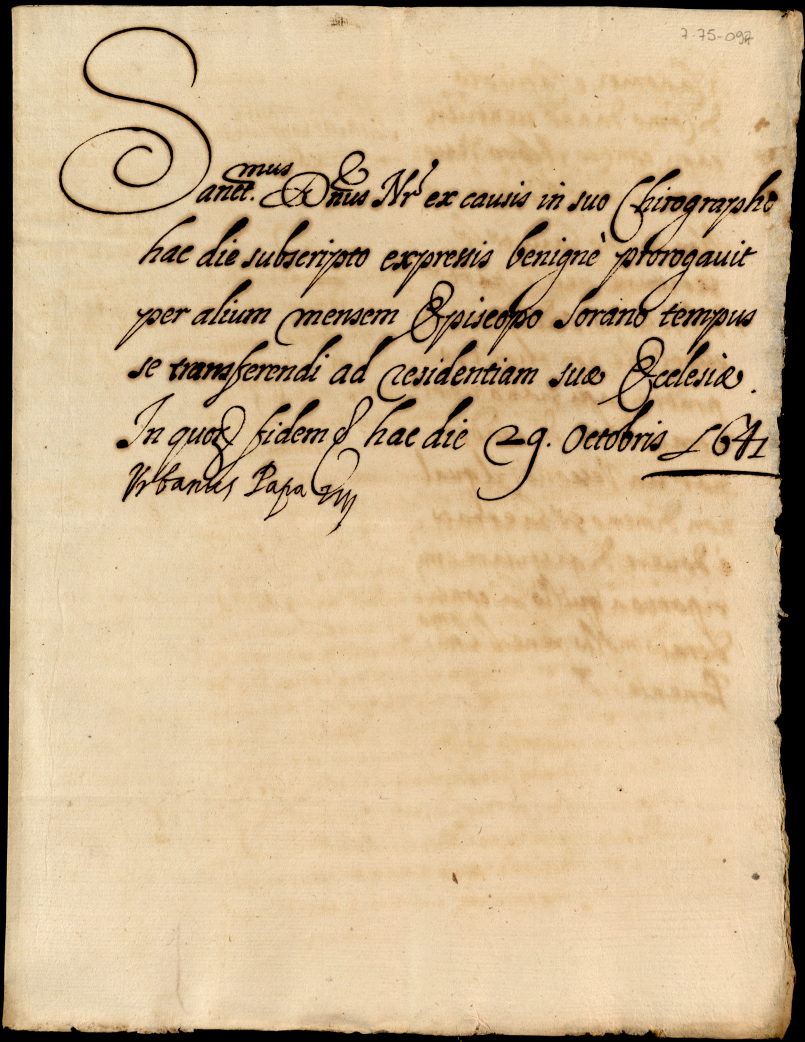 7-75-097
Sanct.mus Dnus Nr ex causis in suo Chirographo
hac die subscripto expressis benignè prorogauit
per alium mensem Episcopo Sorano tempus
se transferendi ad residentiam suæ Ecclesiæ.
In quorum fidem hac die 29. Octobris 1641
Vrbanus Papa Viij